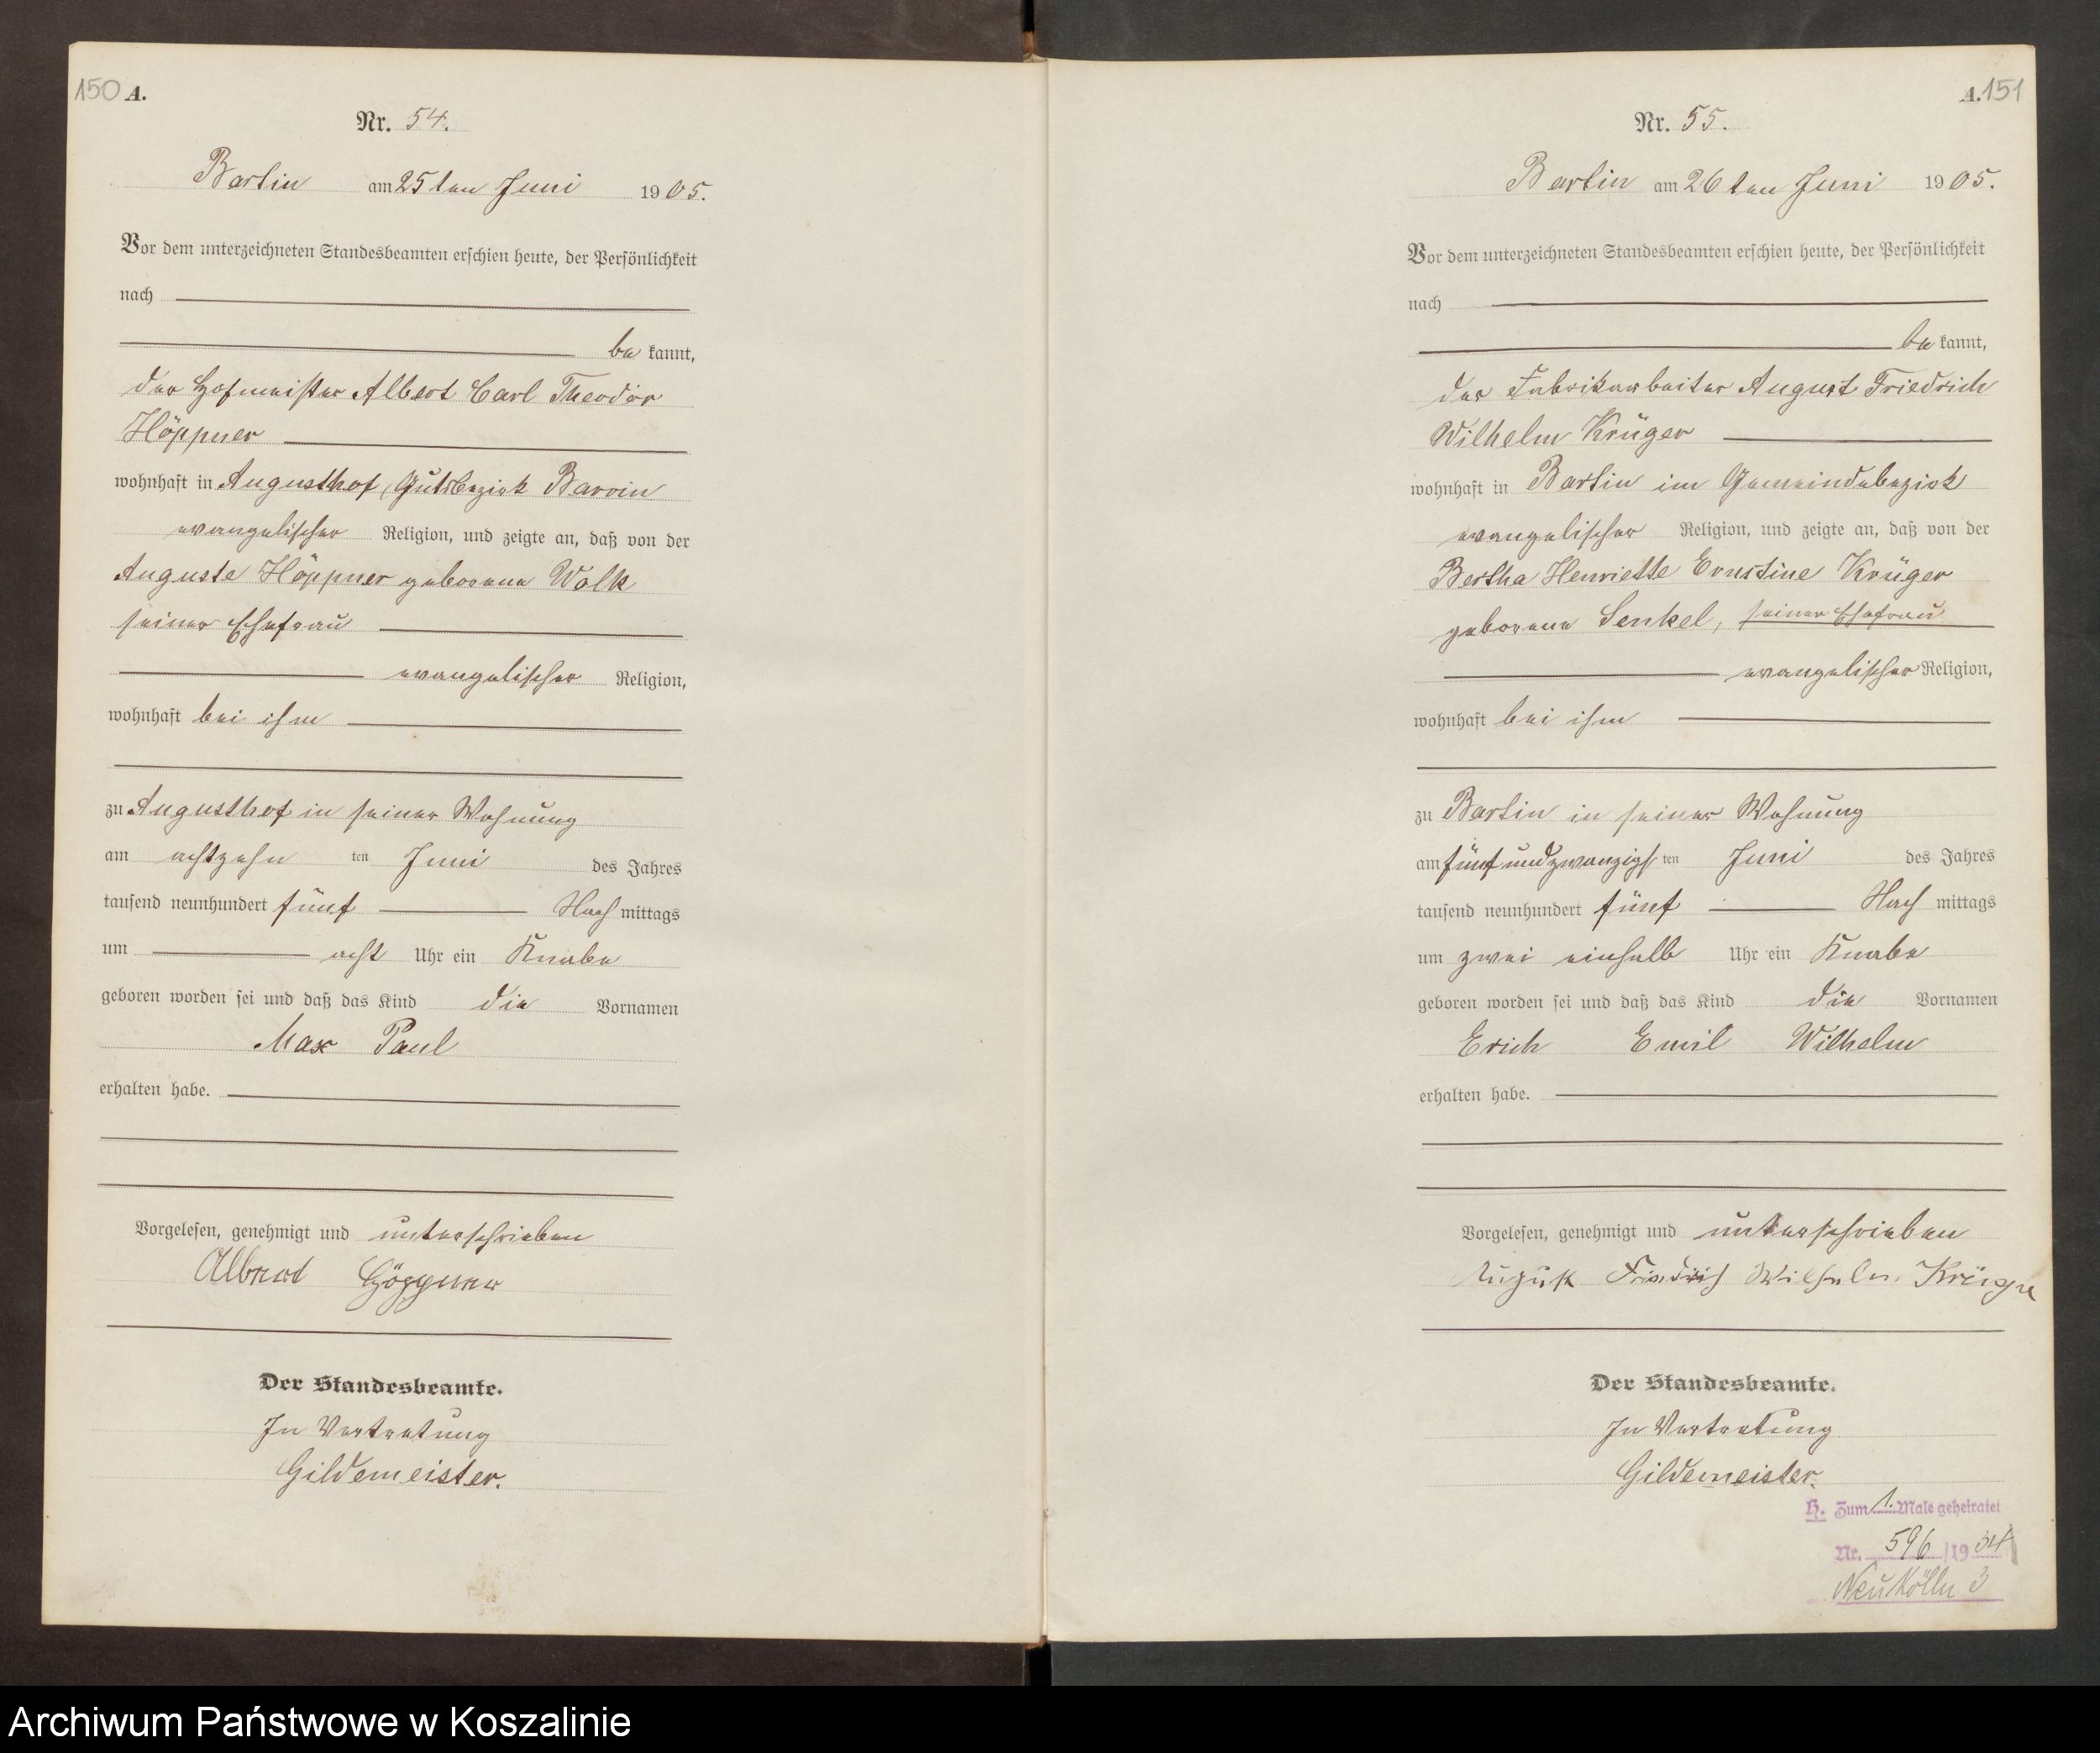 150 A.
Nr. 54.
Bartin am 25ten Juni 1905.
Vor dem unterzeichneten Standesbeamten erschien heute, der Persönlichkeit
nach
be kannt,
der Hofmeister Albert Carl Theodor
Höppner
wohnhaft in Augusthof, Gutsbezirk Barvin
evangelischer Religion, und zeigte an, daß von der
Auguste Höppner geborene Wolk
seiner Ehefrau
evangelischer Religion,
wohnhaft bei ihm
zu Augusthof in seiner Wohnung
am achtzehn ten Juni des Jahres
tausend neunhundert fünf Nach mittags
um acht Uhr ein Knabe
geboren worden sei und daß das Kind die Vornamen
Max Paul
erhalten habe.
Vorgelesen, genehmigt und unterschrieben
Albert Höppner
Der Standesbeamte.
In Vertretung
Gildemeister.
A. 151
Nr. 55.
Bartin am 26ten Juni 1905.
Vor dem unterzeichneten Standesbeamten erschien heute, der Persönlichkeit
nach
be kannt,
der Fabrikarbeiter August Friedrich
Wilhelm Krüger
wohnhaft in Bartin im Gemeindebezirk
evangelischer Religion, und zeigte an, daß von der
Bertha Henriette Ernstine Krüger
geborene Senkel, seiner Ehefrau
evangelischer Religion,
wohnhaft bei ihm
zu Bartin in seiner Wohnung
am fünfundzwanzigs ten Juni des Jahres
tausend neunhundert fünf Nach mittags
um zwei einhalb Uhr ein Knabe
geboren worden sei und daß das Kind die Vornamen
Erich Emil Wilhelm
erhalten habe.
Vorgelesen, genehmigt und unterschrieben
August Friedrich Wilhelm Krüger
Der Standesbeamte.
In Vertretung
Gildemeister.
H. Zum 1. Male geheiratet
Nr. 596/1934
Neukölln 3
Archiwum Państwowe w Koszalinie